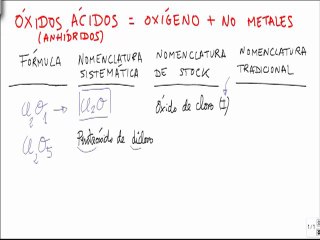 ÓXIDOS ÁCIDOS = OXÍGENO + NO METALES
(ANHÍDRIDOS)
FÓRMULA NOMENCLATURA SISTEMÁTICA NOMENCLATURA DE STOCK NOMENCLATURA TRADICIONAL
Cl2O1 → Cl2O Óxido de cloro (I)
Cl2O5 Pentaóxido de dicloro
1/1